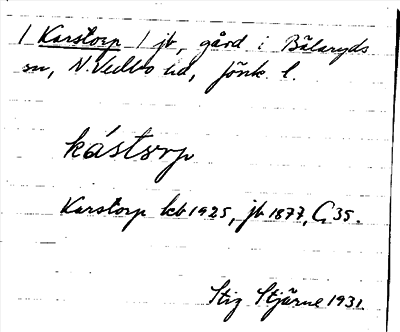 / Karstorp / jb, gård i Bälaryds
sn, N. Vedbo hd, Jönk. l.
kástorp
Karstorp kb 1925, jb 1877, C, 35.
Stig Stjärne 1931